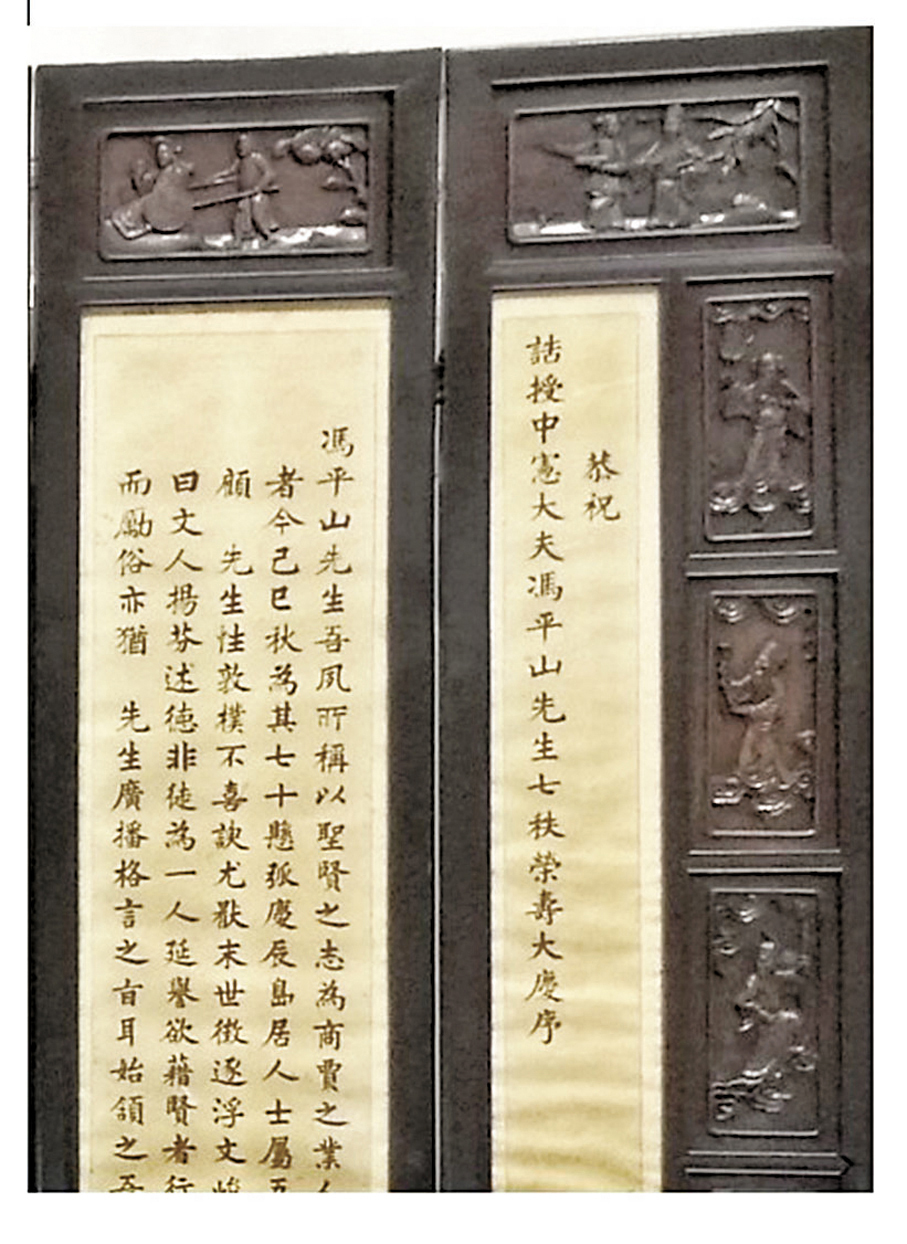 恭祝
誥授中憲大夫馮平山先生七秩榮壽大慶序
馮平山先生吾夙所稱以聖賢之志為商賈之業
者今己巳秋為其七十懸弧慶辰島居人士屬
顧　先生性敦樸不喜諛尤厭末世徵逐浮文
曰文人揚芬述德非徒為一人延譽欲藉賢者行
而勵俗亦猶　先生廣播格言之旨耳始頷之吾